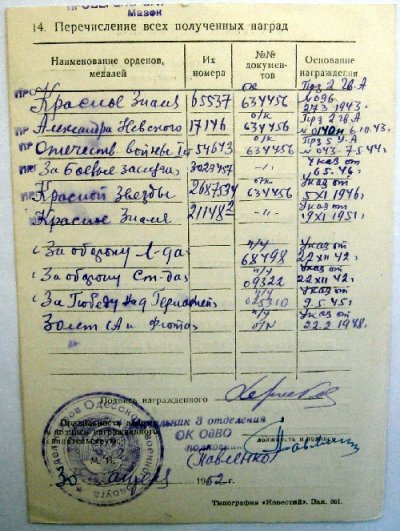 Мазек
14. Перечисление всех полученных наград
Наименование орденов, медалей
Их номера
№№ документов
Основание награждения
Красное Знамя 65537 о/к 634456 Прз 2 гв. А №096. 27.3.1943.
Александра Невского 17146 о/к 634456 Прз 2 гв. А 6.10.43.
Отечеств войны Iст 54643 634456 Прз 5 уд. А №043 7.5.44г
За Боевые заслуги 3023457 -"- Указ от 46.
Красной Звезды 2687534 о/к 634456 Указ от 5/XI 1946г
Красное Знамя -"- Указ от XI 1951г
За оборону Л-да п/у 68498 Указ от 22/XII 42г.
За оборону Ст-да п/у 09322 Указ от 22/XII 42г.
За Победу над Германией п/у 025310 Указ от 9.5.45г.
30 лет СА и флота Указ от 22.2.1948г.
Подпись награжденного
Начальник 3 отделения
ОК ОдВО
Павленко
должность и подпись
М. П.
30 апреля 1952 г.
Типография «Известий». Зак. 861.